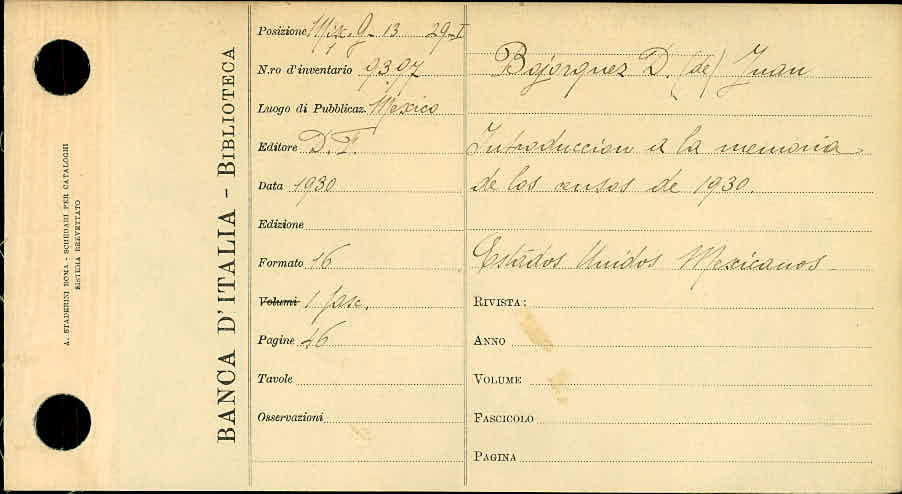 A. STADERINI ROMA - SCHEDARI PER CATALOGHI
SISTEMA BREVETTATO
BANCA D'ITALIA - BIBLIOTECA
Posizione 13 29-I
N.ro d'inventario 9397
Luogo di Pubblicaz. Mexico
Editore D. F.
Data 1930
Edizione
Formato 16
Volumi 1 fasc.
Pagine 46
Tavole
Osservazioni
Bojorquez D. (de) Juan
Introduccion a la memoria
de los censos de 1930.
Estados Unidos Mexicanos
RIVISTA:
ANNO
VOLUME
FASCICOLO
PAGINA